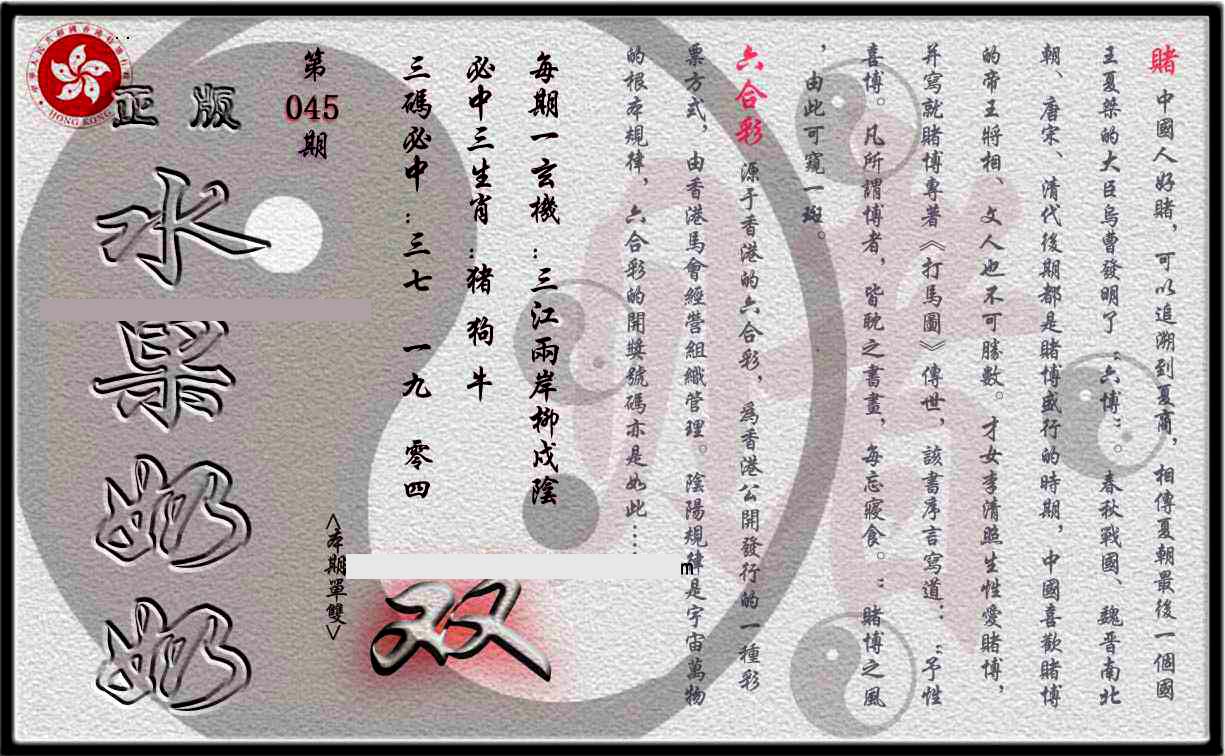 賭 中國人好賭，可以追溯到夏商，相傳夏朝最後一個國
王夏桀的大臣烏曹發明了“六博”。春秋戰國、魏晋南北
朝、唐宋、清代後期都是賭博盛行的時期，中國喜歡賭博
的帝王將相、文人也不可勝數。才女李清照生性愛賭博，
并寫就賭博專著《打馬圖》傳世，該書序言寫道：“予性
喜博。凡所謂博者，皆耽之書畫，每忘寢食。”賭博之風
，由此可窺一斑。
六合彩 源于香港的六合彩，爲香港公開發行的一種彩
票方式，由香港馬會經營組織管理。陰陽規律是宇宙萬物
的根本規律，六合彩的開獎號碼亦是如此....
每期一玄機：三江兩岸柳成陰
必中三生肖：猪 狗 牛
三碼必中：三七 一九 零四
<本期單雙>
双
m
第
045
期
正版
水
果
奶
奶
HONG KONG